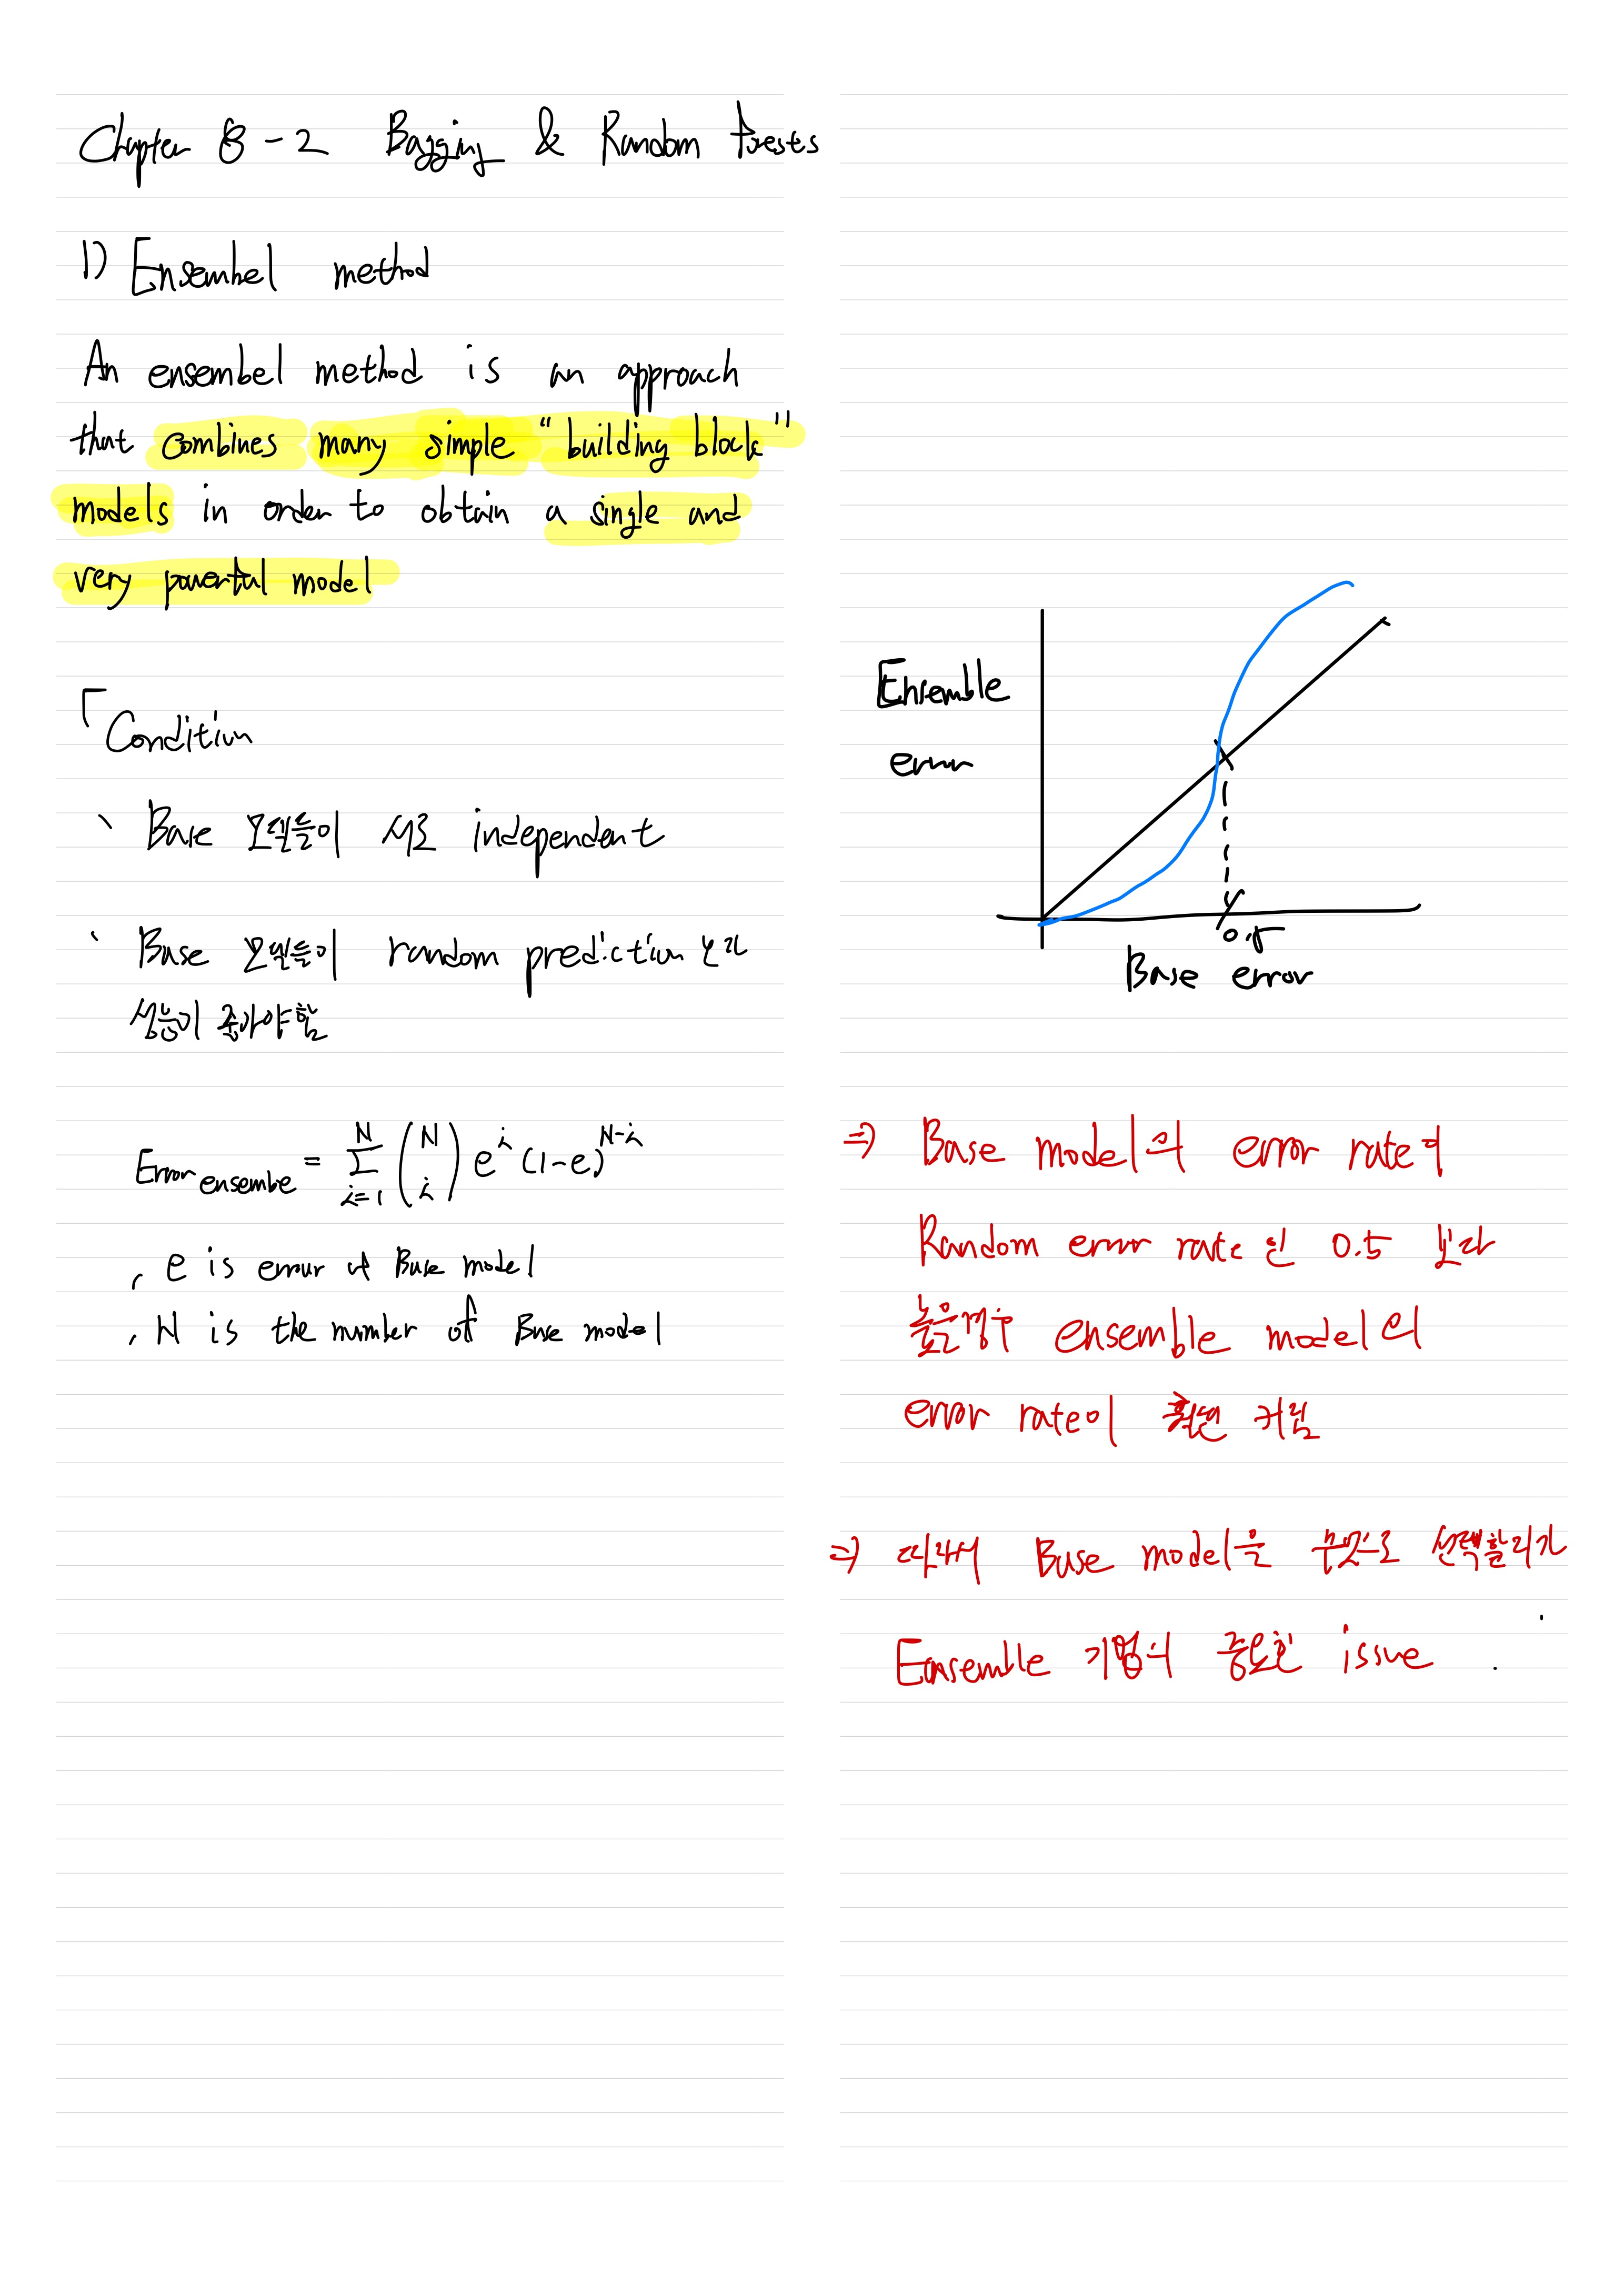 Chapter 8-2 Bagging & Random forests
1) Ensembel method
An ensembel method is an approach
that combines many simple "building block"
models in order to obtain a single and
very powerful model
「Condition
Base 모델들이 서로 independent
Base 모델들이 random prediction 보다
성능이 좋아야함
Error ensembe = \sum_{i=1}^{N} \binom{N}{i} e^{i} (1-e)^{N-i}
, e is error of Base model
, N is the number of Base model
Ensemble
error
0.5
Base error
⇒ Base model의 error rate이
Random error rate인 0.5 보다
높을경우 ensemble model의
error rate이 훨씬 커짐
⇒ 따라서 Base model을 무엇으로 선택할지가
Ensemble 기법의 중요한 issue